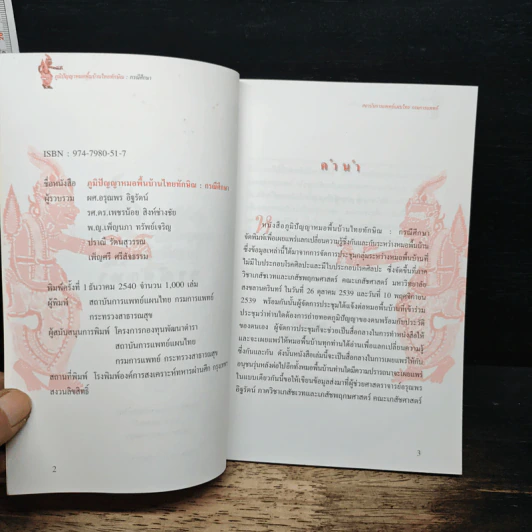 ภูมิปัญญาหมอพื้นบ้านไทยทักษิณ : กรณีศึกษา
ISBN : 974-7980-51-7
ชื่อหนังสือ ภูมิปัญญาหมอพื้นบ้านไทยทักษิณ : กรณีศึกษา
ผู้รวบรวม ผศ.อรุณพร อิฐรัตน์
รศ.ดร.เพชรน้อย สิงห์ช่างชัย
พ.ญ.เพ็ญนภา ทรัพย์เจริญ
ปราณี รัตนสุวรรณ
เพ็ญศรี ศรีสัธรรม
พิมพ์ครั้งที่ 1 ธันวาคม 2540 จำนวน 1,000 เล่ม
ผู้พิมพ์ สถาบันการแพทย์แผนไทย กรมการแพทย์
กระทรวงสาธารณสุข
ผู้สนับสนุนการพิมพ์ โครงการกองทุนพัฒนาตำรา
สถาบันการแพทย์แผนไทย
กรมการแพทย์ กระทรวงสาธารณสุข
สถานที่พิมพ์ โรงพิมพ์องค์การสงเคราะห์ทหารผ่านศึก กรุงเทพฯ
สงวนลิขสิทธิ์
2
สถาบันการแพทย์แผนไทย กรมการแพทย์
คำนำ
หนังสือภูมิปัญญาหมอพื้นบ้านไทยทักษิณ : กรณีศึกษา
จัดพิมพ์เพื่อเผยแพร่แลกเปลี่ยนความรู้ซึ่งกันและกันระหว่างหมอพื้นบ้าน
ซึ่งข้อมูลเหล่านี้ได้มาจากการจัดการประชุมกลุ่มระหว่างหมอพื้นบ้านที่
ไม่มีใบประกอบโรคศิลปะและมีใบประกอบโรคศิลปะ ซึ่งจัดขึ้นที่ภาค
วิชาเภสัชเวทและเภสัชพฤกษศาสตร์ คณะเภสัชศาสตร์ มหาวิทยาลัย
สงขลานครินทร์ ในวันที่ 26 ตุลาคม 2539 และวันที่ 10 พฤศจิกายน
2539 พร้อมกันนั้นผู้จัดการประชุมได้แจ้งต่อหมอพื้นบ้านที่เข้าร่วม
ประชุมว่าท่านใดต้องการถ่ายทอดภูมิปัญญาของตนพร้อมกับประวัติ
ของตนเอง ผู้จัดการประชุมก็จะช่วยเป็นสื่อกลางในการทำหนังสือให้
และจะเผยแพร่ให้หมอพื้นบ้านทุกท่านได้อ่านเพื่อแลกเปลี่ยนความรู้
ซึ่งกันและกัน ดังนั้นหนังสือเล่มนี้จะเป็นสื่อกลางในการเผยแพร่ให้กับ
อนุชนรุ่นหลังต่อไปอีกทั้งหมอพื้นบ้านท่านใดมีความปรารถนาจะเผยแพร่
ในแบบเดียวกันนี้ขอให้เขียนข้อมูลส่งมาที่ผู้ช่วยศาสตราจารย์อรุณพร
อิฐรัตน์ ภาควิชาเภสัชเวทและเภสัชพฤกษศาสตร์ คณะเภสัชศาสตร์
3